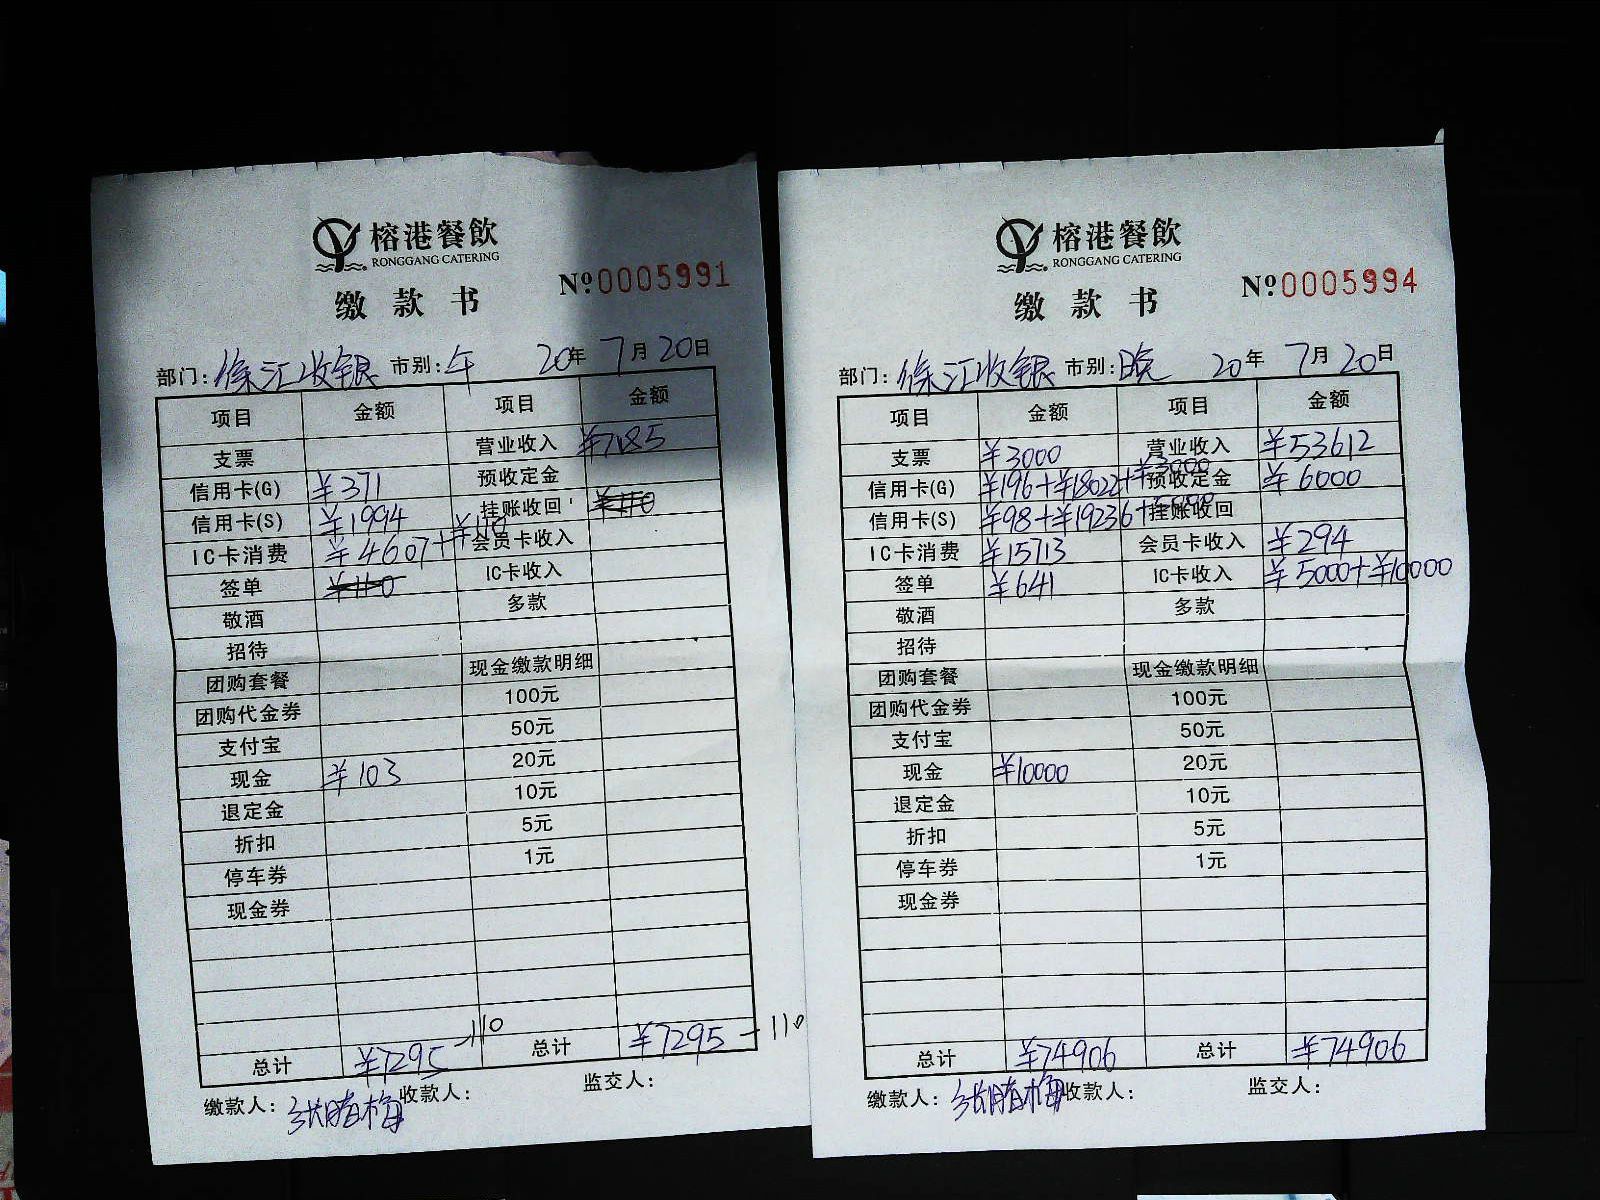 榕港餐飲
RONGGANG CATERING
缴款书
Nº0005991
部门:徐汇收银 市别:午 20年7月20日
项目 金额 项目 金额
支票 营业收入 ¥7185
信用卡(G) ¥371 预收定金
信用卡(S) ¥1994 挂账收回 ¥110
IC卡消费 ¥4607+¥110 会员卡收入
签单 ¥110 IC卡收入
敬酒 多款
招待
团购套餐 现金缴款明细
团购代金券 100元
支付宝 50元
现金 ¥103 20元
退定金 10元
折扣 5元
停车券 1元
现金券
总计 ¥7295-110 总计 ¥7295-110
缴款人: 收款人: 监交人:
榕港餐飲
RONGGANG CATERING
缴款书
Nº0005994
部门:徐汇收银 市别:晚 20年7月20日
项目 金额 项目 金额
支票 ¥3000 营业收入 ¥53612
信用卡(G) ¥196+¥18022+¥3000 预收定金 ¥6000
信用卡(S) ¥98+¥19236+5000 挂账收回
IC卡消费 ¥15713 会员卡收入 ¥294
签单 ¥641 IC卡收入 ¥5000+¥10000
敬酒 多款
招待
团购套餐 现金缴款明细
团购代金券 100元
支付宝 50元
现金 ¥10000 20元
退定金 10元
折扣 5元
停车券 1元
现金券
总计 ¥74906 总计 ¥74906
缴款人: 收款人: 监交人: